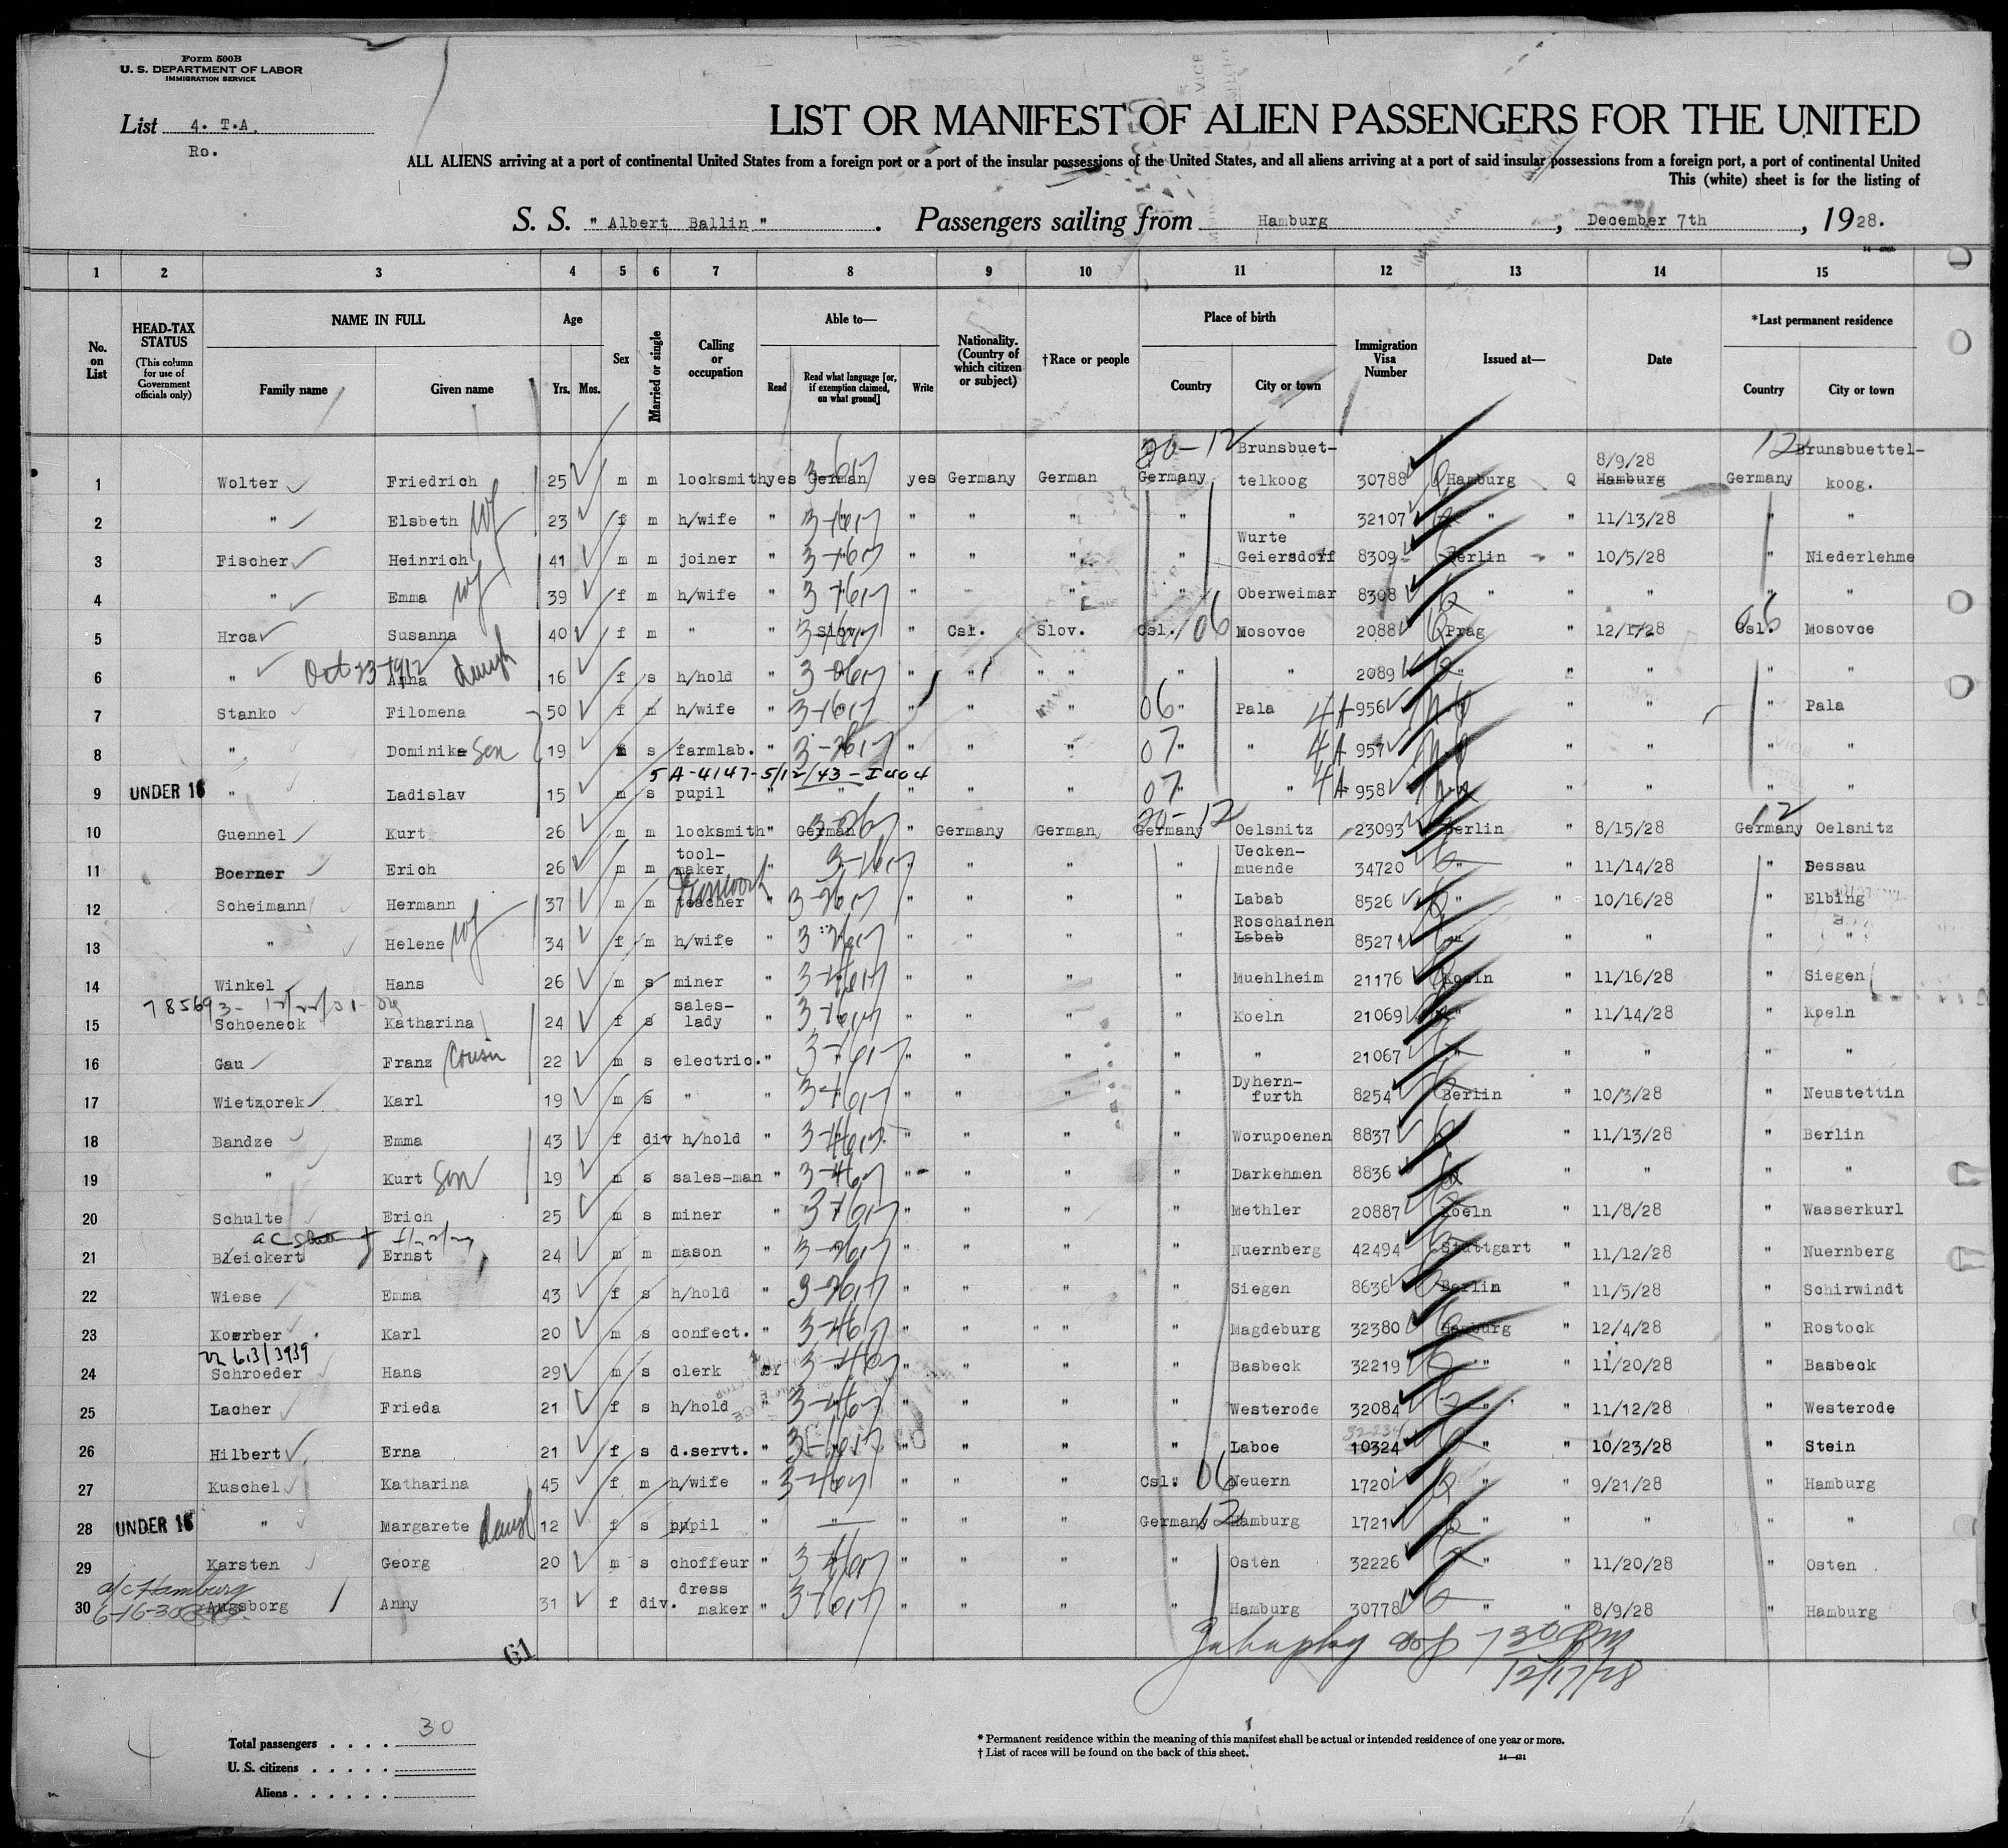 Form 500B
U. S. DEPARTMENT OF LABOR
IMMIGRATION SERVICE
List 4. T.A.
Ro.
LIST OR MANIFEST OF ALIEN PASSENGERS FOR THE UNITED
ALL ALIENS arriving at a port of continental United States from a foreign port or a port of the insular possessions of the United States, and all aliens arriving at a port of said insular possessions from a foreign port, a port of continental United
This (white) sheet is for the listing of
S. S. " Albert Ballin " . Passengers sailing from Hamburg , December 7th , 1928.
1 2 3 4 5 6 7 8 9 10 11 12 13 14 15
No. on List
HEAD-TAX STATUS (This column for use of Government officials only)
NAME IN FULL Family name Given name
Age Yrs. Mos.
Sex
Married or single
Calling or occupation
Able to— Read Read what language [or, if exemption claimed, on what ground] Write
Nationality. (Country of which citizen or subject)
†Race or people
Place of birth Country City or town
Immigration Visa Number
Issued at—
Date
*Last permanent residence Country City or town
20-12 Brunsbuet- 8/9/28 12 Brunsbuettel-
1 Wolter Friedrich 25 m m locksmith yes German yes Germany German Germany telkoog 30788 Hamburg Q Hamburg Germany koog.
2 " Elsbeth wf 23 f m h/wife " " " " " " " 32107 " " 11/13/28 " "
Wurte
3 Fischer Heinrich 41 m m joiner " " " " " " Geiersdorf 8309 Berlin " 10/5/28 " Niederlehme
4 " Emma wf 39 f m h/wife " " " " " " Oberweimar 8308 " " " " "
5 Hrca Susanna 40 f m " " Slov. " Csl. Slov. Csl. 06 Mosovce 2088 Prag " 12/1/28 Csl. 06 Mosovce
Oct 23-1912
6 " Anna daugh 16 f s h/hold " " " " " " " 2089 " " " " "
7 Stanko Filomena 50 f m h/wife " " " " " 06 " Pala 4A-956 " " " " Pala
8 " Dominik Son 19 m s farmlab. " " " " " 07 " " 4A 957 " " " " "
5A-4147-5/12/43-I404
9 UNDER 16 " Ladislav 15 m s pupil " " " " " 07 " " 4A 958 " " " " "
20-12 12
10 Guennel Kurt 26 m m locksmith " German " Germany German Germany Oelsnitz 23093 Berlin " 8/15/28 Germany Oelsnitz
tool- Uecken-
11 Boerner Erich 26 m m maker " " " " " " muende 34720 " " 11/14/28 " Dessau
12 Scheimann Hermann 37 m m teacher " " " " " " Labab 8526 " " 10/16/28 " Elbing
Roschainen
13 " Helene wf 34 f m h/wife " " " " " " Labab 8527 " " " " "
14 Winkel Hans 26 m s miner " " " " " " Muehlheim 21176 Koeln " 11/16/28 " Siegen
sales-
15 Schoeneck Katharina 24 f s lady " " " " " " Koeln 21069 " " 11/14/28 " Koeln
16 Gau Franz Cousin 22 m s electric. " " " " " " " 21067 " " " " "
Dyhern-
17 Wietzorek Karl 19 m s " " " " " " " furth 8254 Berlin " 10/3/28 " Neustettin
18 Bandze Emma 43 f div h/hold " " " " " " Worupoenen 8837 " " 11/13/28 " Berlin
19 " Kurt Son 19 m s sales-man " " " " " " Darkehmen 8836 " " " " "
20 Schulte Erich 25 m s miner " " " " " " Methler 20887 Koeln " 11/8/28 " Wasserkurl
21 Bleickert Ernst 24 m m mason " " " " " " Nuernberg 42494 Stuttgart " 11/12/28 " Nuernberg
22 Wiese Emma 43 f s h/hold " " " " " " Siegen 8636 Berlin " 11/5/28 " Schirwindt
23 Koerber Karl 20 m s confect. " " " " " " Magdeburg 32380 Hamburg " 12/4/28 " Rostock
22 613/3939
24 Schroeder Hans 29 m s clerk " " " " " " Basbeck 32219 " " 11/20/28 " Basbeck
25 Lacher Frieda 21 f s h/hold " " " " " " Westerode 32084 " " 11/12/28 " Westerode
32234
26 Hilbert Erna 21 f s d.servt. " " " " " " Laboe 10324 " " 10/23/28 " Stein
27 Kuschel Katharina 45 f m h/wife " " " " " Csl. 06 Neuern 1720 " " 9/21/28 " Hamburg
28 UNDER 16 " Margarete daugh 12 f s pupil " " " " " Germany 12 Hamburg 1721 " " " " "
29 Karsten Georg 20 m s choffeur " " " " " " Osten 32226 " " 11/20/28 " Osten
a/c Hamburg dress
30 6-16-30 Augsborg Anny 31 f div. maker " " " " " " Hamburg 30778 " " 8/9/28 " Hamburg
61
7 30 PM
12/17/28
Total passengers . . . . 30
U. S. citizens . . . . .
Aliens . . . . . .
* Permanent residence within the meaning of this manifest shall be actual or intended residence of one year or more.
† List of races will be found on the back of this sheet.
14—431